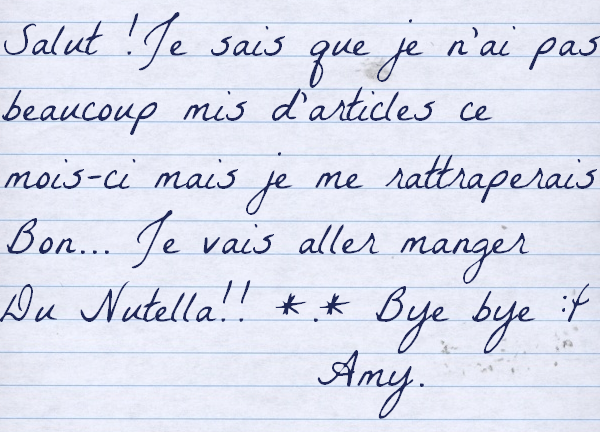 Salut ! Je sais que je n'ai pas
beaucoup mis d'articles ce
mois-ci mais je me rattraperais
Bon... Je vais aller manger
Du Nutella!! *.* Bye bye :f
Amy.